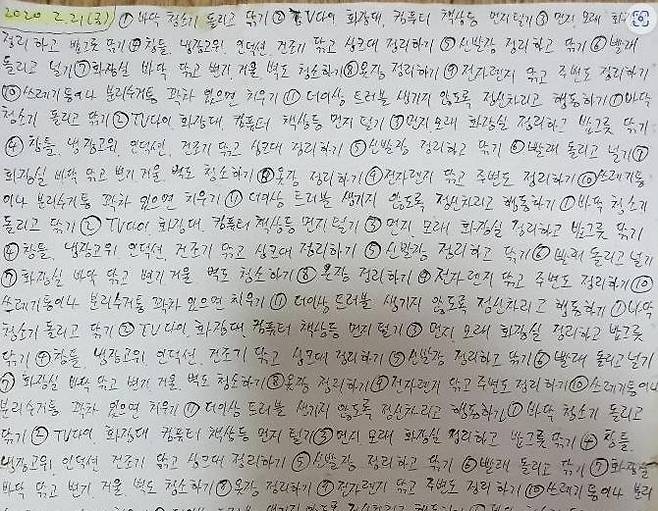 2020. 2. 21(금) ① 바닥 청소기 돌리고 닦기 ② TV다이 화장대, 컴퓨터 책상등 먼지털기 ③ 먼지, 모래 화장실
정리하고 밥그릇 닦기 ④ 창틀, 냉장고위, 인덕션 건조기 닦고 싱크대 정리하기 ⑤ 신발장 정리하고 닦기 ⑥ 빨래
돌리고 널기 ⑦ 화장실 바닥 닦고 변기, 거울 벽도 청소하기 ⑧ 옷장 정리하기 ⑨ 전자렌지 닦고 주변도 정리하기
⑩ 쓰레기통이나 분리수거통 꽉차 있으면 치우기 ⑪ 더이상 트러블 생기지 않도록 정신차리고 행동하기 ① 바닥
청소기 돌리고 닦기 ② TV다이, 화장대, 컴퓨터 책상등 먼지 털기 ③ 먼지 모래 화장실 정리하고 밥그릇 닦기
④ 창틀, 냉장고위, 인덕션, 건조기 닦고 싱크대 정리하기 ⑤ 신발장 정리하고 닦기 ⑥ 빨래 돌리고 널기 ⑦
화장실 바닥 닦고 변기 거울 벽도 청소하기 ⑧ 옷장 정리하기 ⑨ 전자렌지 닦고 주변도 정리하기 ⑩ 쓰레기통
이나 분리수거통 꽉차 있으면 치우기 ⑪ 더이상 트러블 생기지 않도록 정신차리고 행동하기 ① 바닥 청소기
돌리고 닦기 ② TV다이, 화장대, 컴퓨터 책상등 먼지털기 ③ 먼지, 모래 화장실 정리하고 밥그릇 닦기
④ 창틀, 냉장고위 인덕션 건조기 닦고 싱크대 정리하기 ⑤ 신발장 정리하고 닦기 ⑥ 빨래 돌리고 널기
⑦ 화장실 바닥 닦고 변기 거울 벽도 청소하기 ⑧ 옷장 정리하기 ⑨ 전자렌지 닦고 주변도 정리하기 ⑩
쓰레기통이나 분리수거통 꽉차 있으면 치우기 ⑪ 더이상 트러블 생기지 않도록 정신차리고 행동하기 ① 바닥
청소기 돌리고 닦기 ② TV다이, 화장대, 컴퓨터 책상등 먼지털기 ③ 먼지, 모래 화장실 정리하고 밥그릇
닦기 ④ 창틀, 냉장고위, 인덕션, 건조기 닦고 싱크대 정리하기 ⑤ 신발장 정리하고 닦기 ⑥ 빨래 돌리고 널기
⑦ 화장실 바닥 닦고 변기 거울, 벽도 청소하기 ⑧ 옷장 정리하기 ⑨ 전자렌지 닦고 주변도 정리하기 ⑩ 쓰레기통이나
분리수거통 꽉차 있으면 치우기 ⑪ 더이상 트러블 생기지 않도록 정신차리고 행동하기 ① 바닥 청소기 돌리고
닦기 ② TV다이, 화장대 컴퓨터 책상등 먼지 털기 ③ 먼지 모래 화장실 정리하고 밥그릇 닦기 ④ 창틀,
냉장고위, 인덕션 건조기 닦고 싱크대 정리하기 ⑤ 신발장 정리하고 닦기 ⑥ 빨래 돌리고 닦기 ⑦ 화장실
바닥 닦고 변기, 거울 벽도 청소하기 ⑧ 옷장 정리하기 ⑨ 전자렌지 닦고 주변도 정리하기 ⑩ 쓰레기통이나 분리